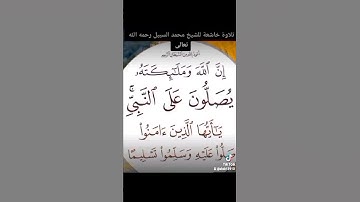 تلاوة خاشعة للشيخ محمد السبيل رحمه الله
تعالى
إِنَّ ٱللَّهَ وَمَلَـٰٓئِكَتَهُۥ
يُصَلُّونَ عَلَى ٱلنَّبِىِّ ۚ
يَـٰٓأَيُّهَا ٱلَّذِينَ ءَامَنُوا۟
صَلُّوا۟ عَلَيْهِ وَسَلِّمُوا۟ تَسْلِيمًا